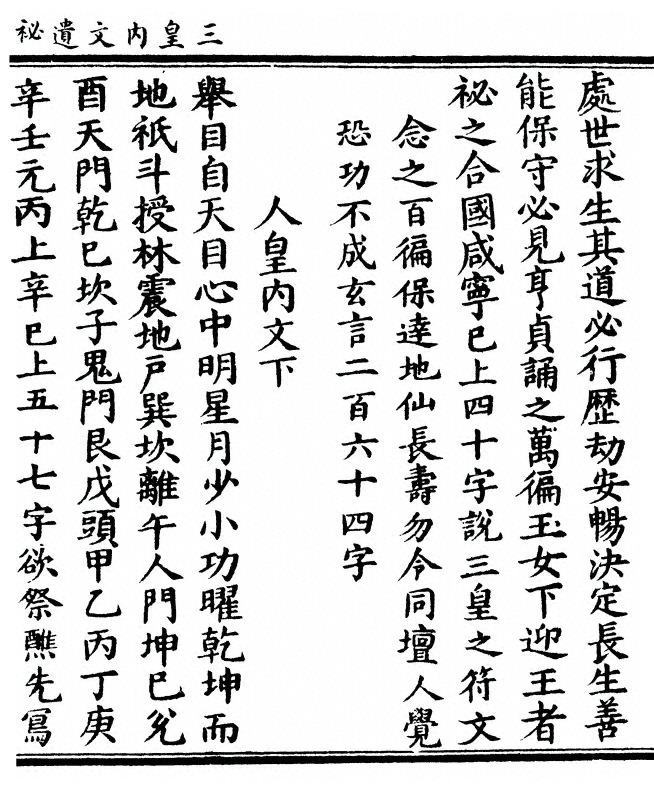 三皇內文遺祕
處世求生其道必行歷劫安暢決定長生善
能保守必見亨貞誦之萬徧玉女下迎王者
祕之合國咸寧巳上四十字說三皇之符文
念之百徧保達地仙長壽勿令同壇人覺
恐功不成玄言二百六十四字
人皇内文下
舉目自天目心中明星月少小功曜乾坤而
地祇斗授林震地戶巽坎離午人門坤巳兊
酉天門乾巳坎子鬼門艮戊頭甲乙丙丁庚
辛壬元丙上辛巳上五十七字欲祭醮先寫